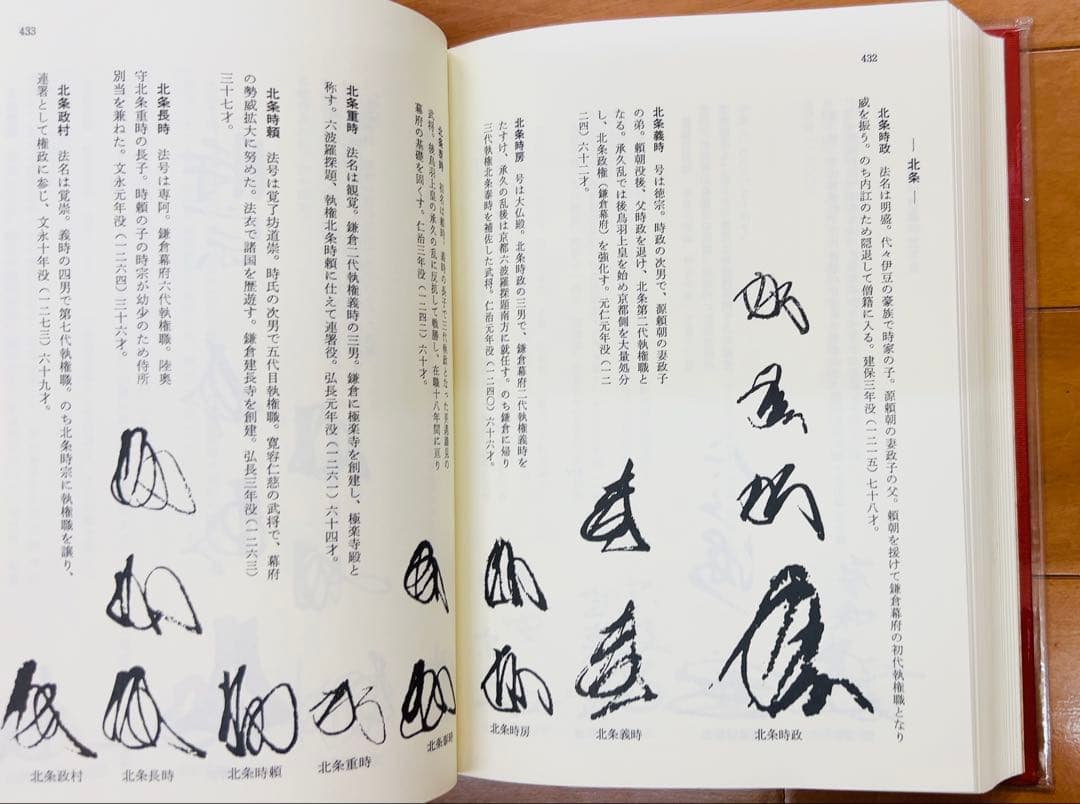 432
― 北条 ―
北条時政　法名は明盛。代々伊豆の豪族で時家の子。源頼朝の妻政子の父。頼朝を援けて鎌倉幕府の初代執権職となり
威を振う。のち内訌のため隠退して僧籍に入る。建保三年没(一二一五)七十八才。
北条時政
北条義時　号は徳宗。時政の次男で、源頼朝の妻政子
の弟。頼朝没後、父時政を退け、北条第二代執権職と
なる。承久乱では後鳥羽上皇を始め京都側を大量処分
し、北条政権(鎌倉幕府)を強化す。元仁元年没(一二
二四)六十二才。
北条義時
北条時房　号は大仏殿。北条時政の三男で、鎌倉幕府二代執権義時を
たすけ、承久の乱後は京都六波羅探題南方に就任す。のち鎌倉に帰り
三代執権北条泰時を補佐した武将。仁治元年没(一二四〇)六十六才。
北条時房
433
北条泰時　初名は頼時。義時の長子で三代執政となった
武将。後鳥羽上皇の承久の乱に反抗して戦勝し、在職十八年間に亘り
幕府の基礎を固くす。仁治三年没(一二四二)六十才。
北条泰時
北条重時　法名は観覚。鎌倉二代執権義時の三男。鎌倉に極楽寺を創建し、極楽寺殿と
称す。六波羅探題、執権北条時頼に仕えて連署役。弘長元年没(一二六一)六十四才。
北条重時
北条時頼　法号は覚了坊道崇。時氏の次男で五代目執権職。寛容仁慈の武将で、幕府
の勢威拡大に努めた。法衣で諸国を歴遊す。鎌倉建長寺を創建。弘長三年没(一二六三)
三十七才。
北条時頼
北条長時　法号は専阿。鎌倉幕府六代執権職。陸奥
守北条重時の長子。時頼の子の時宗が幼少のため侍所
別当を兼ねた。文永元年没(一二六四)三十六才。
北条長時
北条政村　法名は覚崇。義時の四男で第七代執権職。のち北条時宗に執権職を譲り、
連署として権政に参じ、文永十年没(一二七三)六十九才。
北条政村